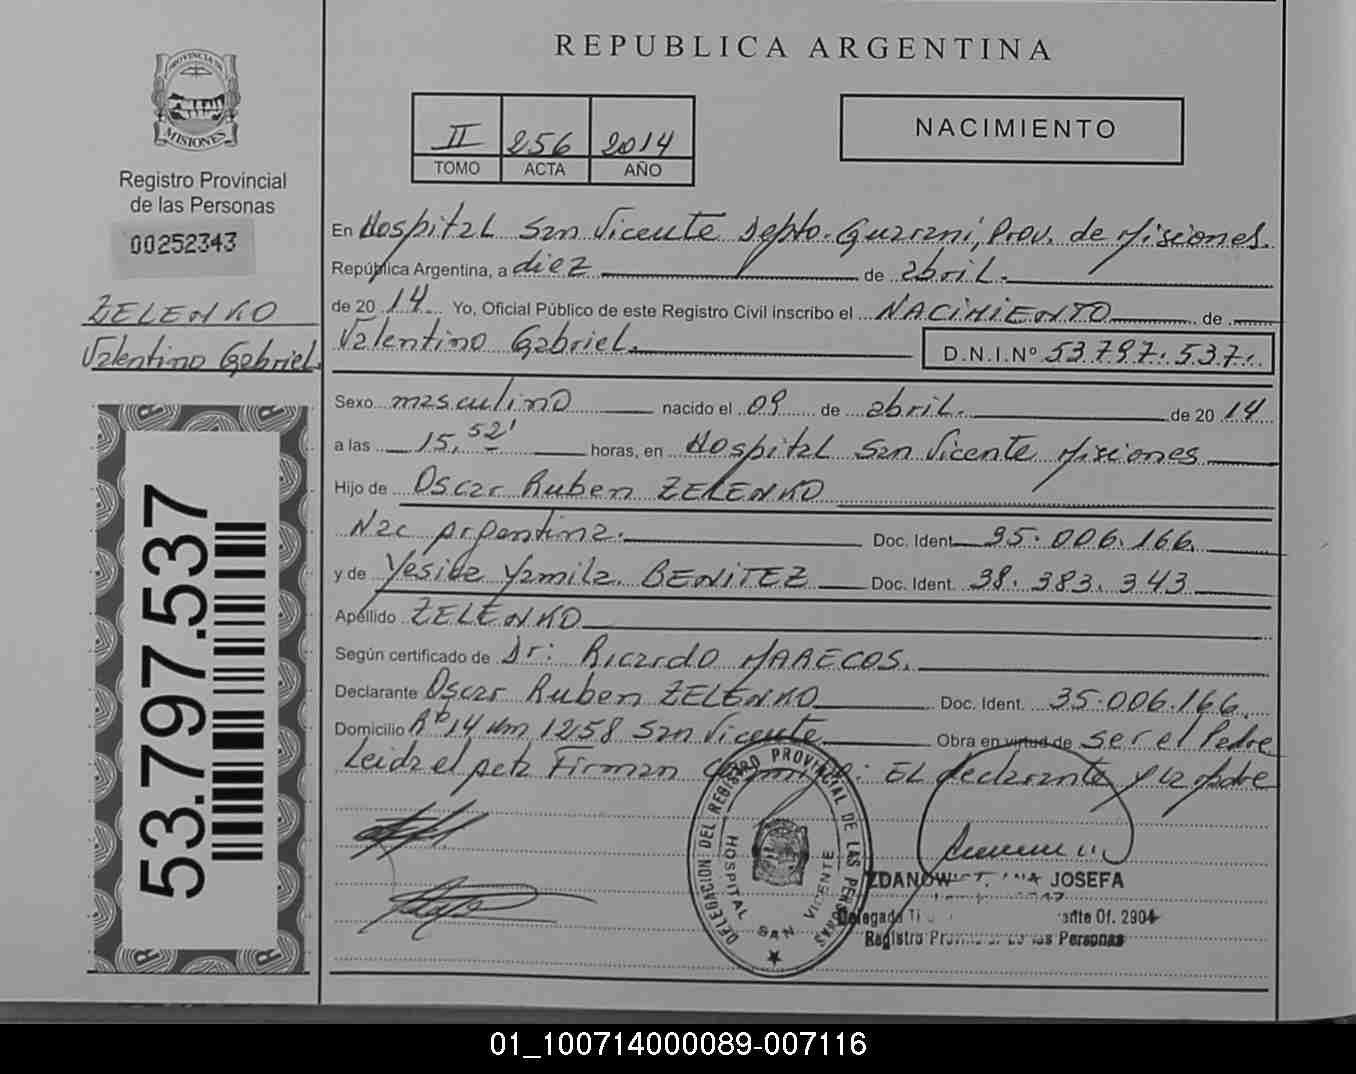 REPUBLICA ARGENTINA
PROVINCIA DE
MISIONES
Registro Provincial
de las Personas
00252343
ZELENKO
Valentino Gabriel.
53.797.537
II 256 2014
TOMO ACTA AÑO
NACIMIENTO
En Hospital San Vicente Depto. Guarani, Prov. de Misiones.
República Argentina, a diez de abril.
de 20 14 Yo, Oficial Público de este Registro Civil inscribo el NACIMIENTO de
Valentino Gabriel. D.N.I.Nº 53.797.537.
Sexo masculino nacido el 09 de abril. de 20 14
a las 15,52' horas, en Hospital San Vicente Misiones
Hijo de Oscar Ruben ZELENKO
Nac Argentina. Doc. Ident. 35.006.166.
y de Yesica Yamila BENITEZ Doc. Ident. 38.383.343
Apéllido ZELENKO
Según certificado de Dr: Ricardo MARECOS.
Declarante Oscar Ruben ZELENKO Doc. Ident. 35.006.166.
Domicilio Rº 14 km 1258 San Vicente Obra en virtud de ser el Padre
Leida el acta Firman : El declarante y la madre
DELEGACION DEL REGISTRO PROVINCIAL DE LAS PERSONAS
HOSPITAL SAN VICENTE
JOSEFA
Delegada Of. 2904
Registro de las Personas
01_100714000089-007116